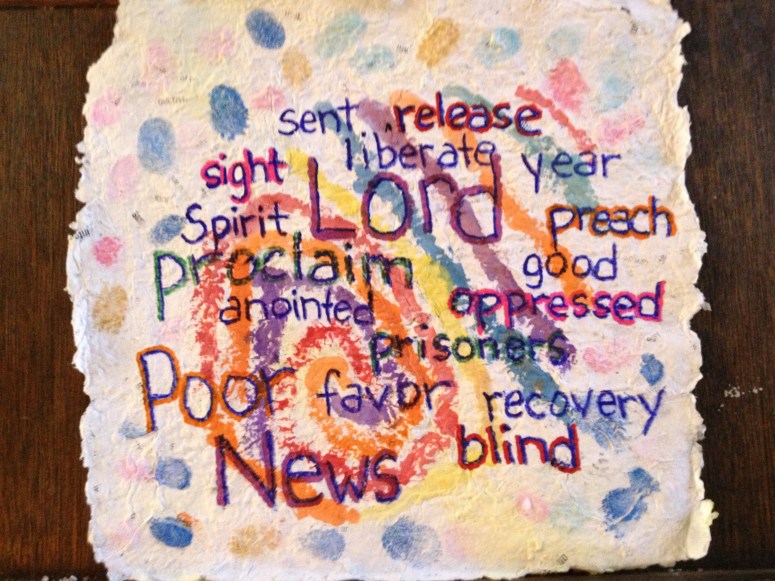 sent release
liberate year
sight Lord
Spirit preach
proclaim good
anointed oppressed
prisoners
Poor favor recovery
News blind